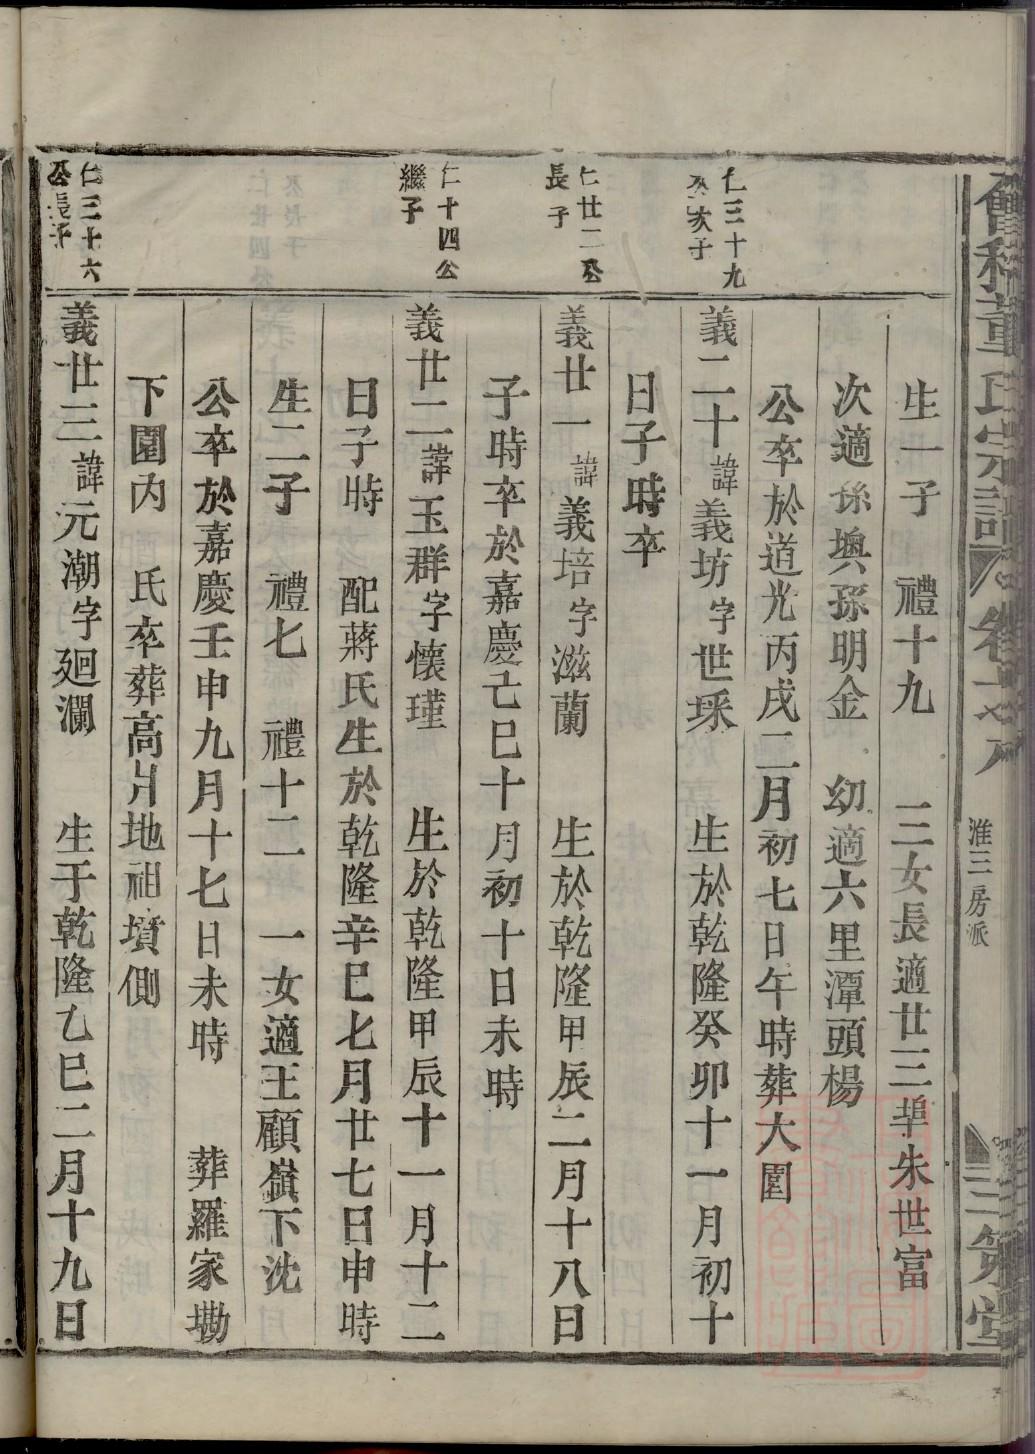 稽董氏宗譜 卷
淮三房派
三策堂
生一子 禮十九 三女長適廿三埠朱世富
次適孫墺孫明金 幼適六里潭頭楊
公卒於道光丙戌二月初七日午時葬大園
仁三十九
公次子
義二十諱義坊字世琛 生於乾隆癸卯十一月初十
日子時卒
仁廿二公
長子
義廿一諱義培字滋蘭 生於乾隆甲辰二月十八日
子時卒於嘉慶己巳十月初十日未時
仁十四公
繼子
義廿二諱玉群字懷瑾 生於乾隆甲辰十一月十二
日子時 配蔣氏生於乾隆辛巳七月廿七日申時
生二子 禮七 禮十二 一女適王顧嶺下沈
公卒於嘉慶壬申九月十七日未時 葬羅家墈
下園內 氏卒葬高爿地祖墳側
仁三十六
公長子
義廿三諱元潮字廻瀾 生于乾隆乙巳二月十九日